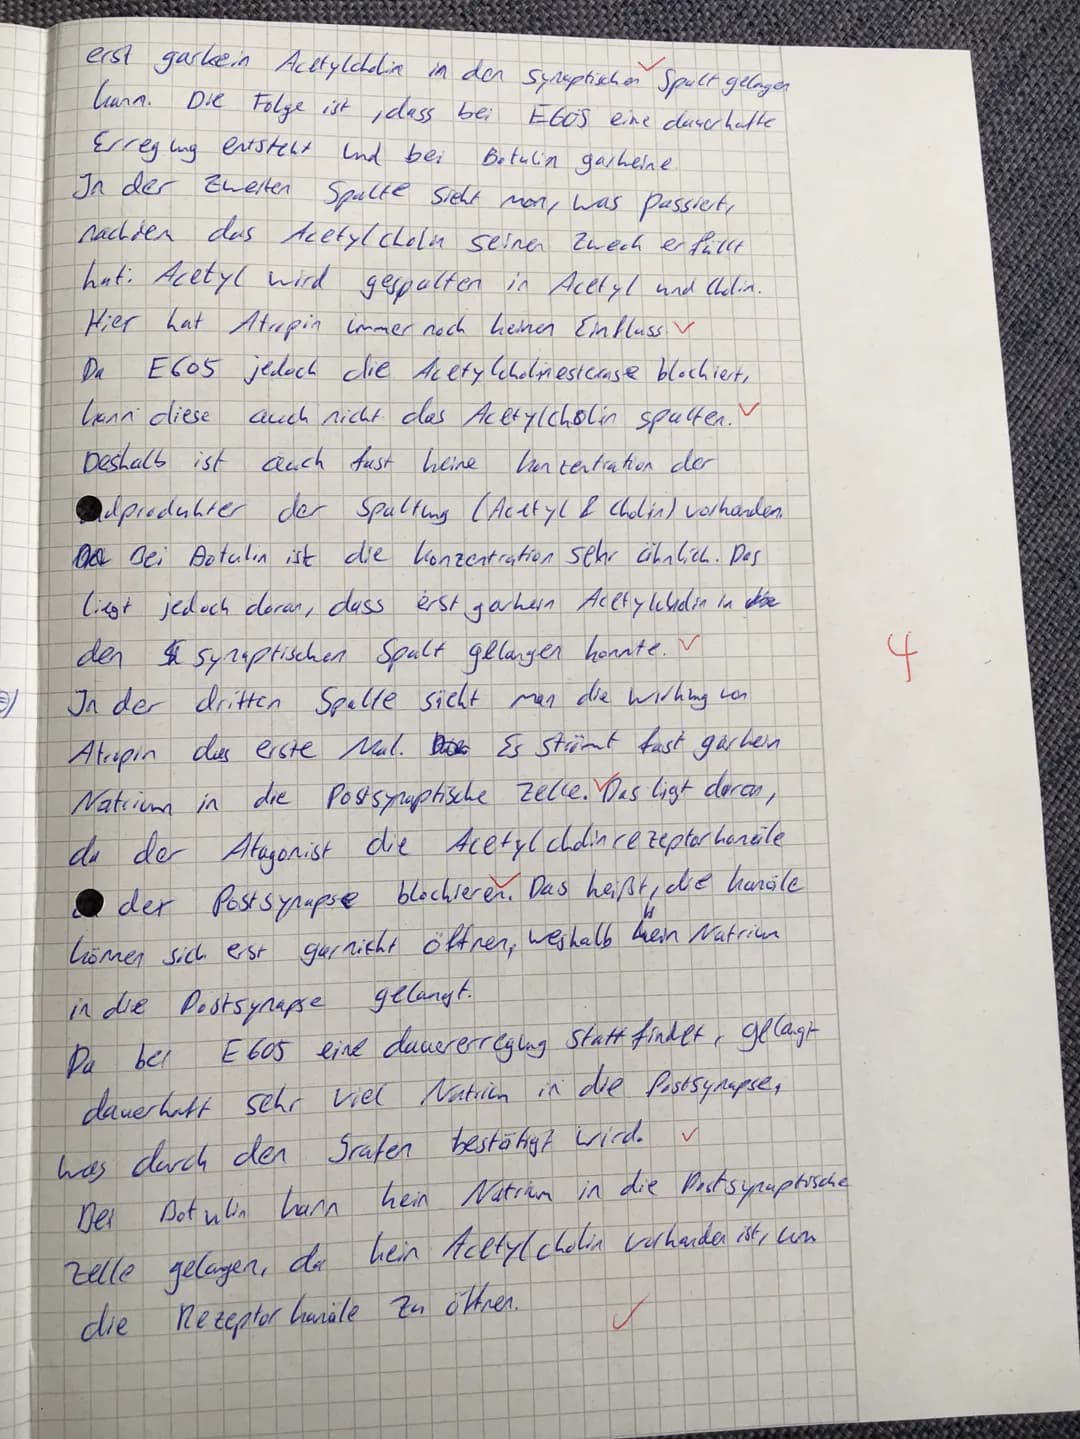 erst garkein Acetylcholin in den synaptischen Spalt gelangen
kann. Die Folge ist, dass bei E605 eine dauerhafte
Erregung entsteht und bei Botulin garkeine.
In der zweiten Spalte sieht man, was passiert,
nachdem das Acetylcholin seinen Zweck erfüllt
hat: Acetyl wird gespalten in Acetyl und Cholin.
Hier hat Atropin immer noch keinen Einfluss.
Da E605 jedoch die Acetylcholinesterase blockiert,
kann diese auch nicht das Acetylcholin spalten.
Deshalb ist auch fast keine Konzentration der
dprodukter der Spaltung (Acetyl & Cholin) vorhanden.
Bei Botulin ist die Konzentration sehr ähnlich. Das
liegt jedoch daran, dass erst garkein Acetylcholin in
den synaptischen Spalt gelangen konnte.
4
In der dritten Spalte sieht man die Wirkung von
Atropin das erste Mal. Es strömt fast garkein
Natrium in die Postsynaptische Zelle. Das ligt daran,
da der Atagonist die Acetylcholinrezeptorkanäle
der Postsynapse blockieren. Das heißt, die Kanäle
können sich erst garnicht öffnen, weshalb kein Natrium
in die Postsynapse gelangt.
Da bei E605 eine dauererregung stattfindet, gelangt
dauerhaft sehr viel Natrium in die Postsynapse,
was durch den Grafen bestätigt wird.
Bei Botulin kann kein Natrium in die Postsynaptische
Zelle gelangen, da kein Acetylcholin vorhanden ist, um
die Rezeptorkanäle zu öffnen.